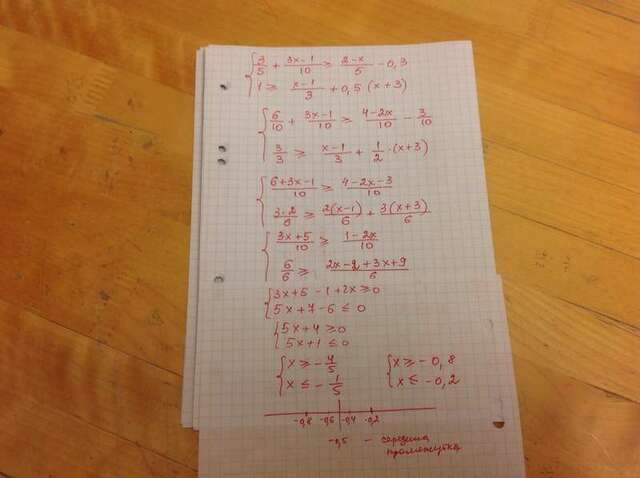 { 3/5 + (3x-1)/10 ≥ (2-x)/5 - 0,3
1 ≥ (x-1)/3 + 0,5 (x+3)
{ 6/10 + (3x-1)/10 ≥ (4-2x)/10 - 3/10
3/3 ≥ (x-1)/3 + 1/2 · (x+3)
{ (6+3x-1)/10 ≥ (4-2x-3)/10
(3·2)/6 ≥ (2(x-1))/6 + (3(x+3))/6
{ (3x+5)/10 ≥ (1-2x)/10
6/6 ≥ (2x-2+3x+9)/6
{ 3x+5-1+2x ≥ 0
5x+7-6 ≤ 0
{ 5x+4 ≥ 0
5x+1 ≤ 0
{ x ≥ -4/5
x ≤ -1/5
{ x ≥ -0,8
x ≤ -0,2
-0,8 -0,6 -0,4 -0,2
-0,5 - середина
промежутка